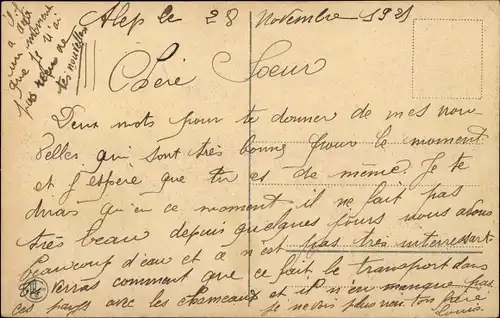 Alep le 28 Novembre 1921
il y
a déjà
un moment
que je n'ai
pas reçu de
tes nouvelles
Chère Soeur
Deux mots pour te donner de mes nou
velles qui sont très bonne pour le moment
et j'espère que tu es de même Je te
dirais qu'en ce moment il ne fait pas
très beau depuis quelques jours nous avons
beaucoup d'eau et ce n'est pas très interressant
Tu verras comment que ce fait le transport dans
ces pays avec les chameaux et il n'en manque pas
Je ne vois plus rien ton frère
Louis